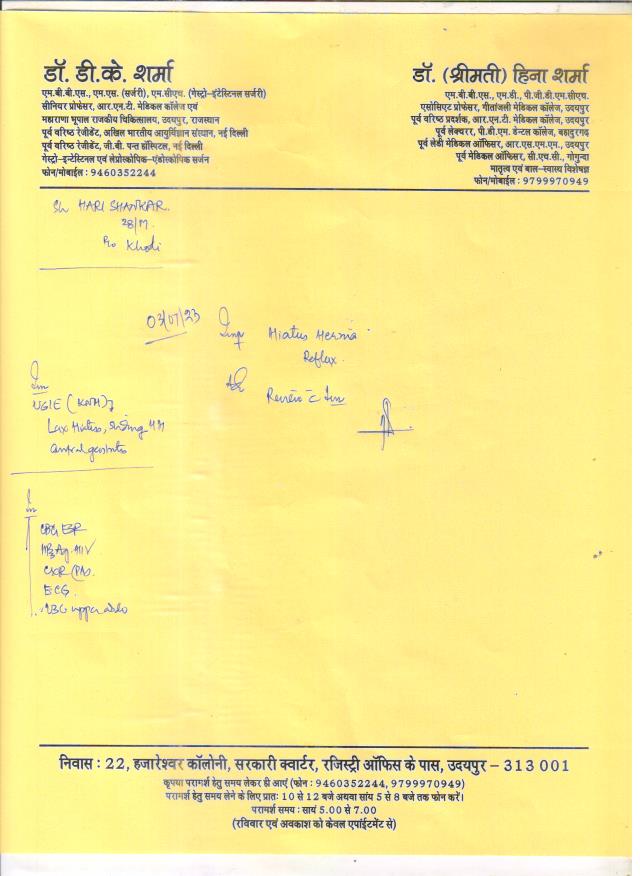 डॉ. डी.के. शर्मा
एम.बी.बी.एस., एम.एस. (सर्जरी), एम.सीएच. (गेस्ट्रो-इंटेस्टिनल सर्जरी)
सीनियर प्रोफेसर, आर.एन.टी. मेडिकल कॉलेज एवं
महाराणा भूपाल राजकीय चिकित्सालय, उदयपुर, राजस्थान
पूर्व वरिष्ठ रेजीडेंट, अखिल भारतीय आयुर्विज्ञान संस्थान, नई दिल्ली
पूर्व वरिष्ठ रेजीडेंट, जी.बी. पन्त हॉस्पिटल, नई दिल्ली
गेस्ट्रो-इन्टेस्टिनल एवं लेप्रोस्कोपिक-एंडोस्कोपिक सर्जन
फोन/मोबाईल : 9460352244
डॉ. (श्रीमती) हिना शर्मा
एम.बी.बी.एस., एम.डी., पी.जी.डी.एम.सीएच.
एसोसिएट प्रोफेसर, गीतांजली मेडिकल कॉलेज, उदयपुर
पूर्व वरिष्ठ प्रदर्शक, आर.एन.टी. मेडिकल कॉलेज, उदयपुर
पूर्व लेक्चरर, पी.डी.एम. डेन्टल कॉलेज, बहादुरगढ़
पूर्व लेडी मेडिकल ऑफिसर, आर.एस.एम.एम., उदयपुर
पूर्व मेडिकल ऑफिसर, सी.एच.सी., गोगुन्दा
मातृत्व एवं बाल-स्वास्थ्य विशेषज्ञ
फोन/मोबाईल : 9799970949
Sh HARI SHANKAR.
28/M
R/o Kherli
03/07/23
Imp Hiatus Hernia
Reflux.
Adv Review c̄ Inv
Inv
UGIE
Lax Hiatus, Sliding HH
antral gastritis
Inv
CBC ESR
HBsAg HIV
CXR (PA)
ECG
USG upper abdo
निवास : 22, हजारेश्वर कॉलोनी, सरकारी क्वार्टर, रजिस्ट्री ऑफिस के पास, उदयपुर – 313 001
कृपया परामर्श हेतु समय लेकर ही आएं (फोन : 9460352244, 9799970949)
परामर्श हेतु समय लेने के लिए प्रातः 10 से 12 बजे अथवा सांय 5 से 8 बजे तक फोन करें।
परामर्श समय : सायं 5.00 से 7.00
(रविवार एवं अवकाश को केवल एपांईटमेंट से)